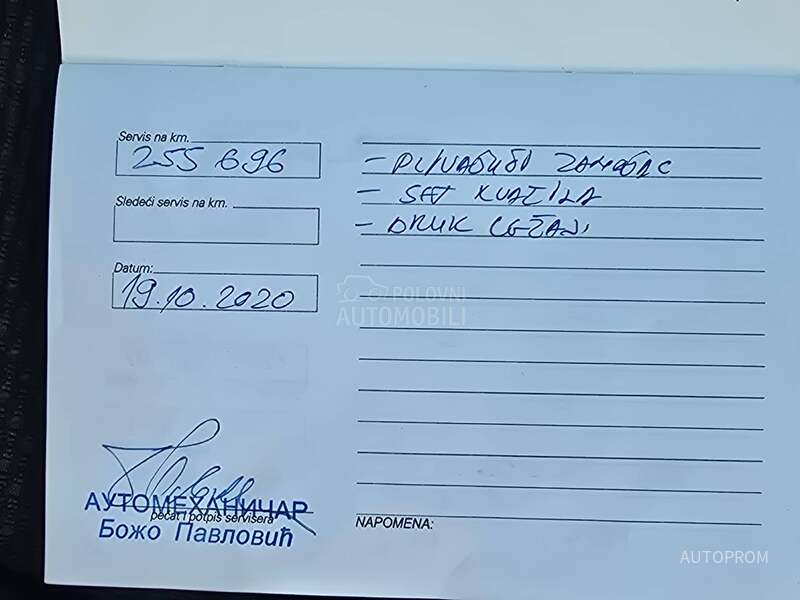 Servis na km.
255 696
Sledeći servis na km.
Datum:
19.10.2020
- PLIVAJUĆI ZAMAJAC
- SET KVAČILA
- DRUK LEŽAJ
POLOVNI
AUTOMOBILI
АУТОМЕХАНИЧАР
pečat i potpis servisera
Божо Павловић
NAPOMENA:
AUTOPROM